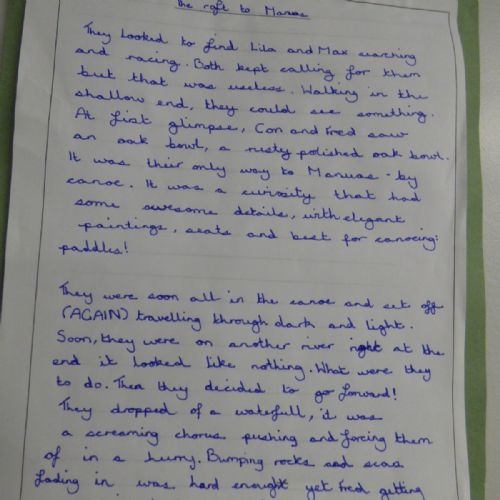 The raft to Manuas
They looked to find Lila and Max marching
and racing. Both kept calling for them
but that was useless. Walking in the
shallow end, they could see something.
At fist glimpse, Con and Fred saw
an oak bowl, a rusty polished oak bowl.
It was their only way to Manuas - by
canoe. It was a curiosity that had
some awesome details, with elegant
paintings, seats and best for canoeing:
paddles!
They were soon all in the canoe and set off
(AGAIN) travelling through dark and light.
Soon, they were on another river right at the
end it looked like nothing. What were they
to do. Then they decided to go forward!
They dropped of a watefull, it was
a screaming chorus pushing and forcing them
of in a hurry. Bumping rocks and scas
fading in was hard enought yet Fred getting